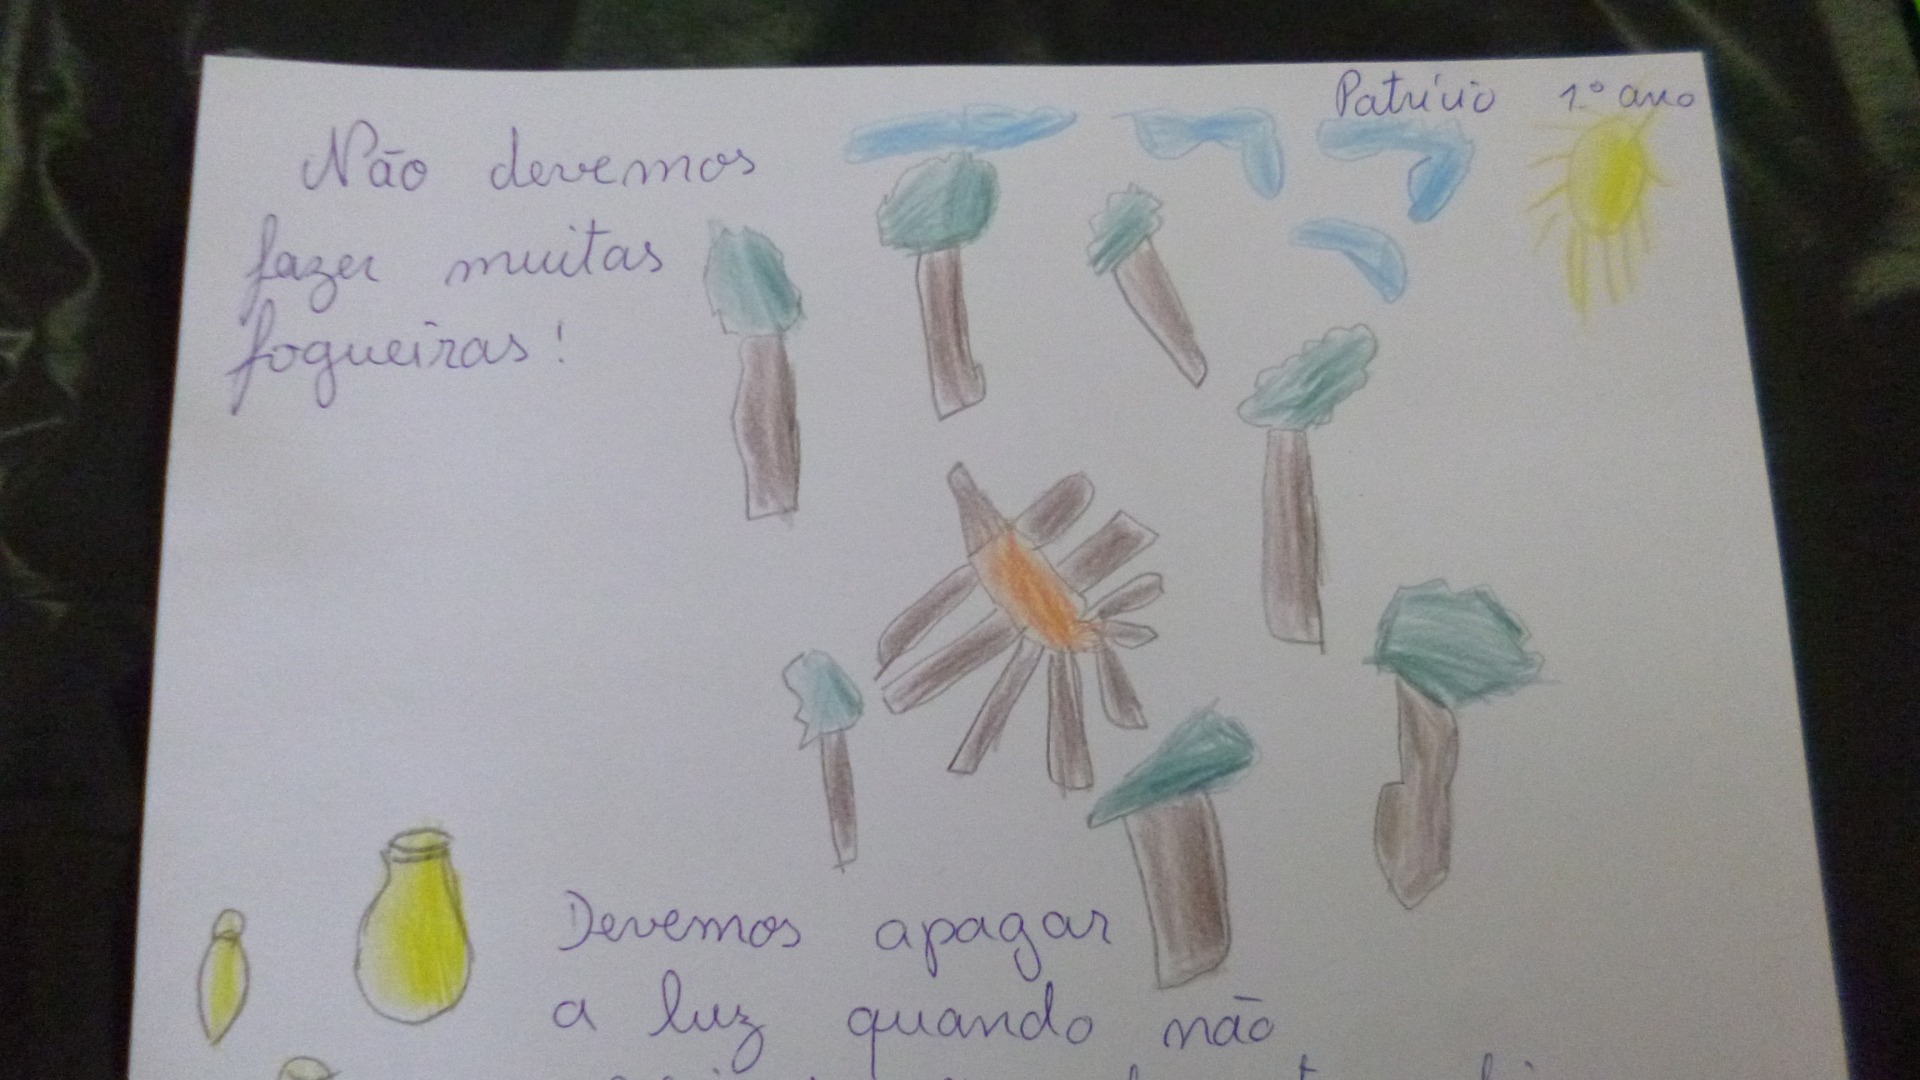 Patrício 1.º ano
Não devemos
fazer muitas
fogueiras!
Devemos apagar
a luz quando não